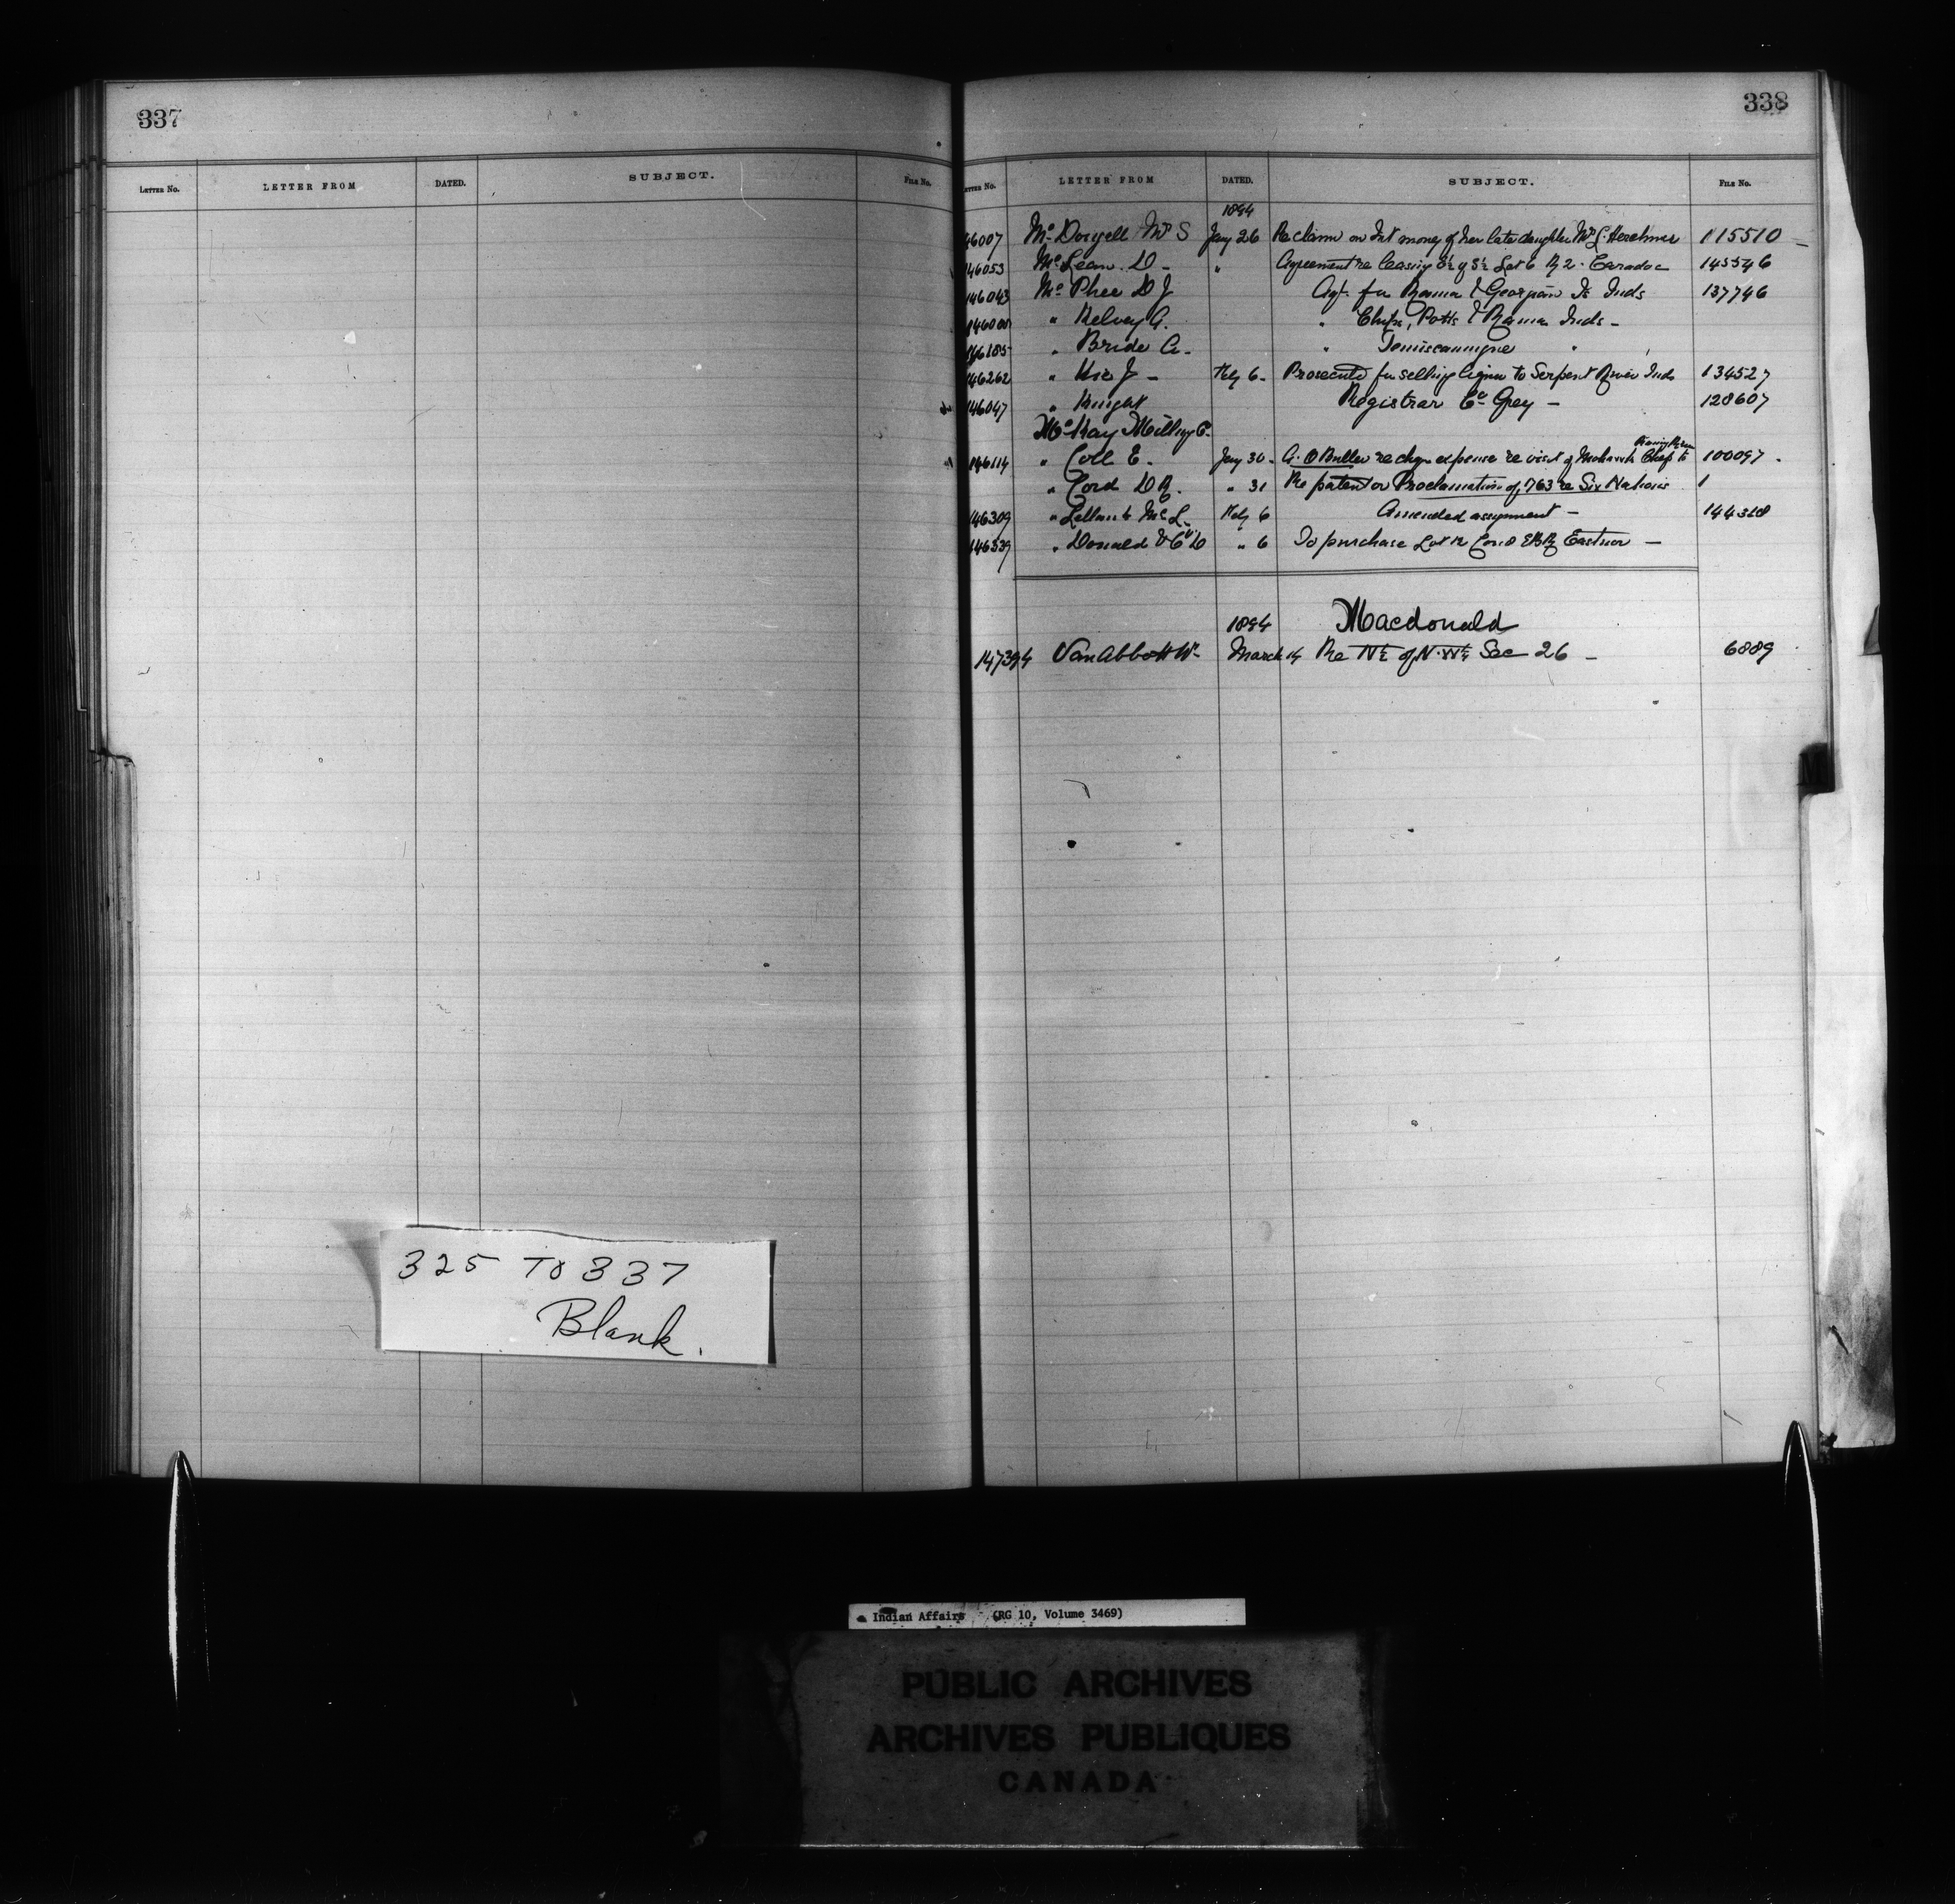 337
LETTER No. LETTER FROM DATED. SUBJECT. FILE No.
325 TO 337
Blank.
338
LETTER No. LETTER FROM DATED. SUBJECT. FILE No.
1894
46007 Mc Dougell Mrs S Jany 26 Re claim on Int money of her late daughter Mrs L. Herchmer 115510 —
146053 Mc Lean D — " Agreement re leasing S½ of S½ Lot 6 R 2. Caradoc 145546
146043 Mc Phee D J Agt. for Rama & Georgian Is Inds 137746
" Kelvey A. " Chips, Potts & Rama Inds —
146185 " Bride A. " Temiscamingue "
146262 " Kie J — Feby 6 — Prosecute for selling liquor to Serpent River Inds 134527
146047 " Knight Registrar Co Grey — 128607
Mc Kay Milling Co.
146114 " Coll E. Jany 30 — A. O Buller re chge expense re visit of Mohawk Chief to 100097 .
" Cord D R. " 31 Re patent or Proclamation of 1763 re Six Nations 1
146309 " Lellan & Mc L. Feby 6 Amended assignment — 144318
146339 " Donald " 6 To purchase Lot 12 Con 8 EBR Eastnor —
1894 Macdonald
147394 Van Abbott Wm March 14 Re N½ of N.W¼ Sec 26 — 6889
Indian Affairs (RG 10, Volume 3469)
PUBLIC ARCHIVES
ARCHIVES PUBLIQUES
CANADA